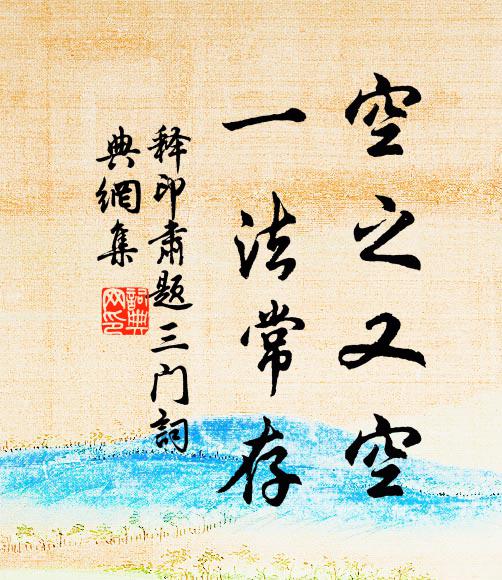 空之又空
一法常存
释印肃题三门詞
典網集
詞典
网印